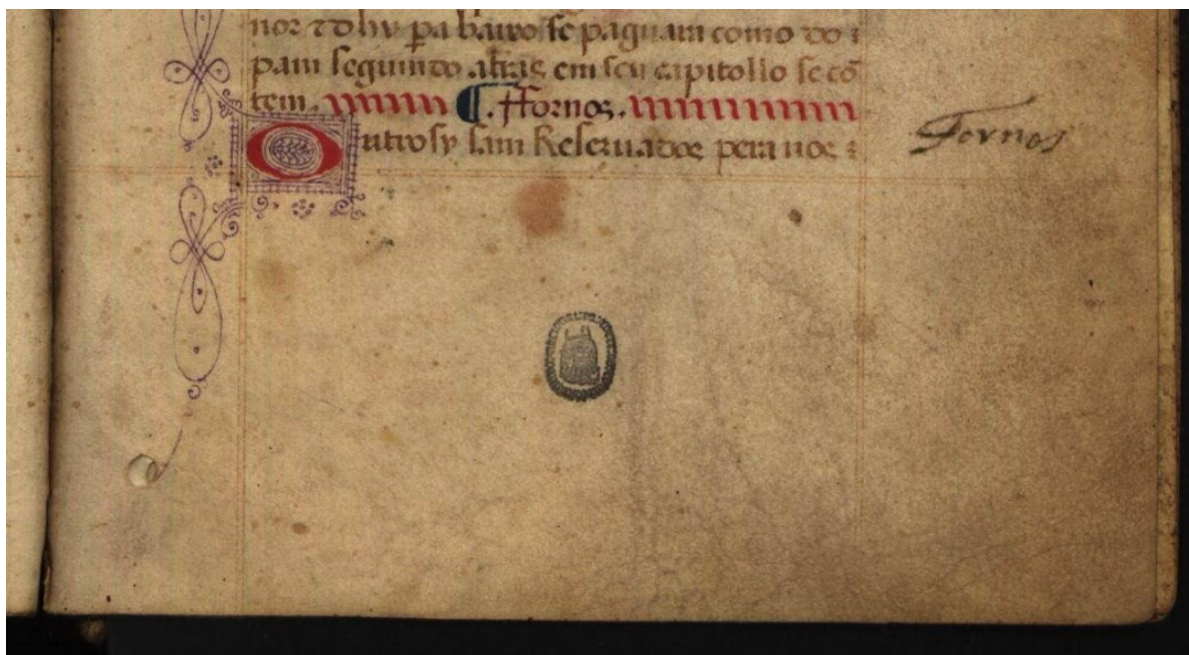 nor ⁊ do hv pa baixo se paguam como do :
pam seguindo atras em seu capitollo se cõ
tem. ¶. Ffornos.
Outrosy sam Reseruados pera nos :
Fornos